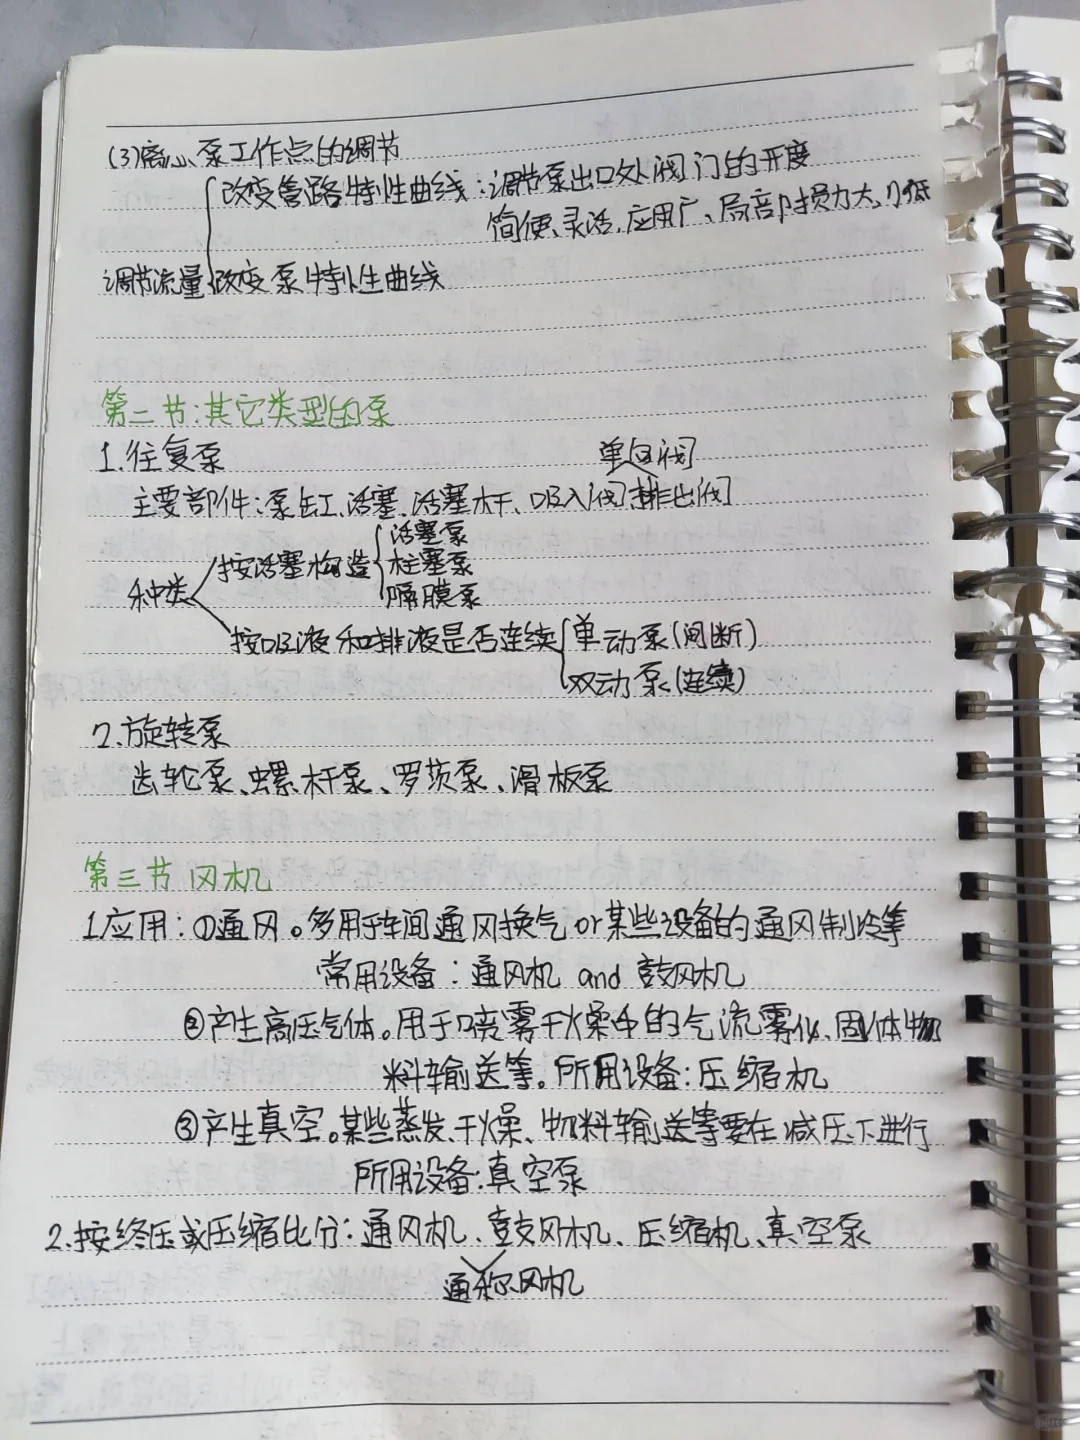 (3)离心泵工作点的调节
改变管路特性曲线：调节泵出口处阀门的开度
简便、灵活，应用广、局部损力大，η低
调节流量 改变泵特性曲线
第二节：其它类型的泵
1.往复泵
单向阀
主要部件：泵缸、活塞、活塞杆、吸入阀、排出阀
活塞泵
按活塞构造 柱塞泵
种类 隔膜泵
按吸液和排液是否连续 单动泵(间断)
双动泵(连续)
2.旋转泵
齿轮泵、螺杆泵、罗茨泵、滑板泵
第三节 风机
1.应用：①通风。多用于车间通风换气or某些设备的通风制冷等
常用设备：通风机 and 鼓风机
②产生高压气体。用于喷雾干燥中的气流雾化、固体物
料输送等。所用设备：压缩机
③产生真空。某些蒸发、干燥、物料输送等要在减压下进行
所用设备：真空泵
2.按终压或压缩比分：通风机、鼓风机、压缩机、真空泵
通称风机